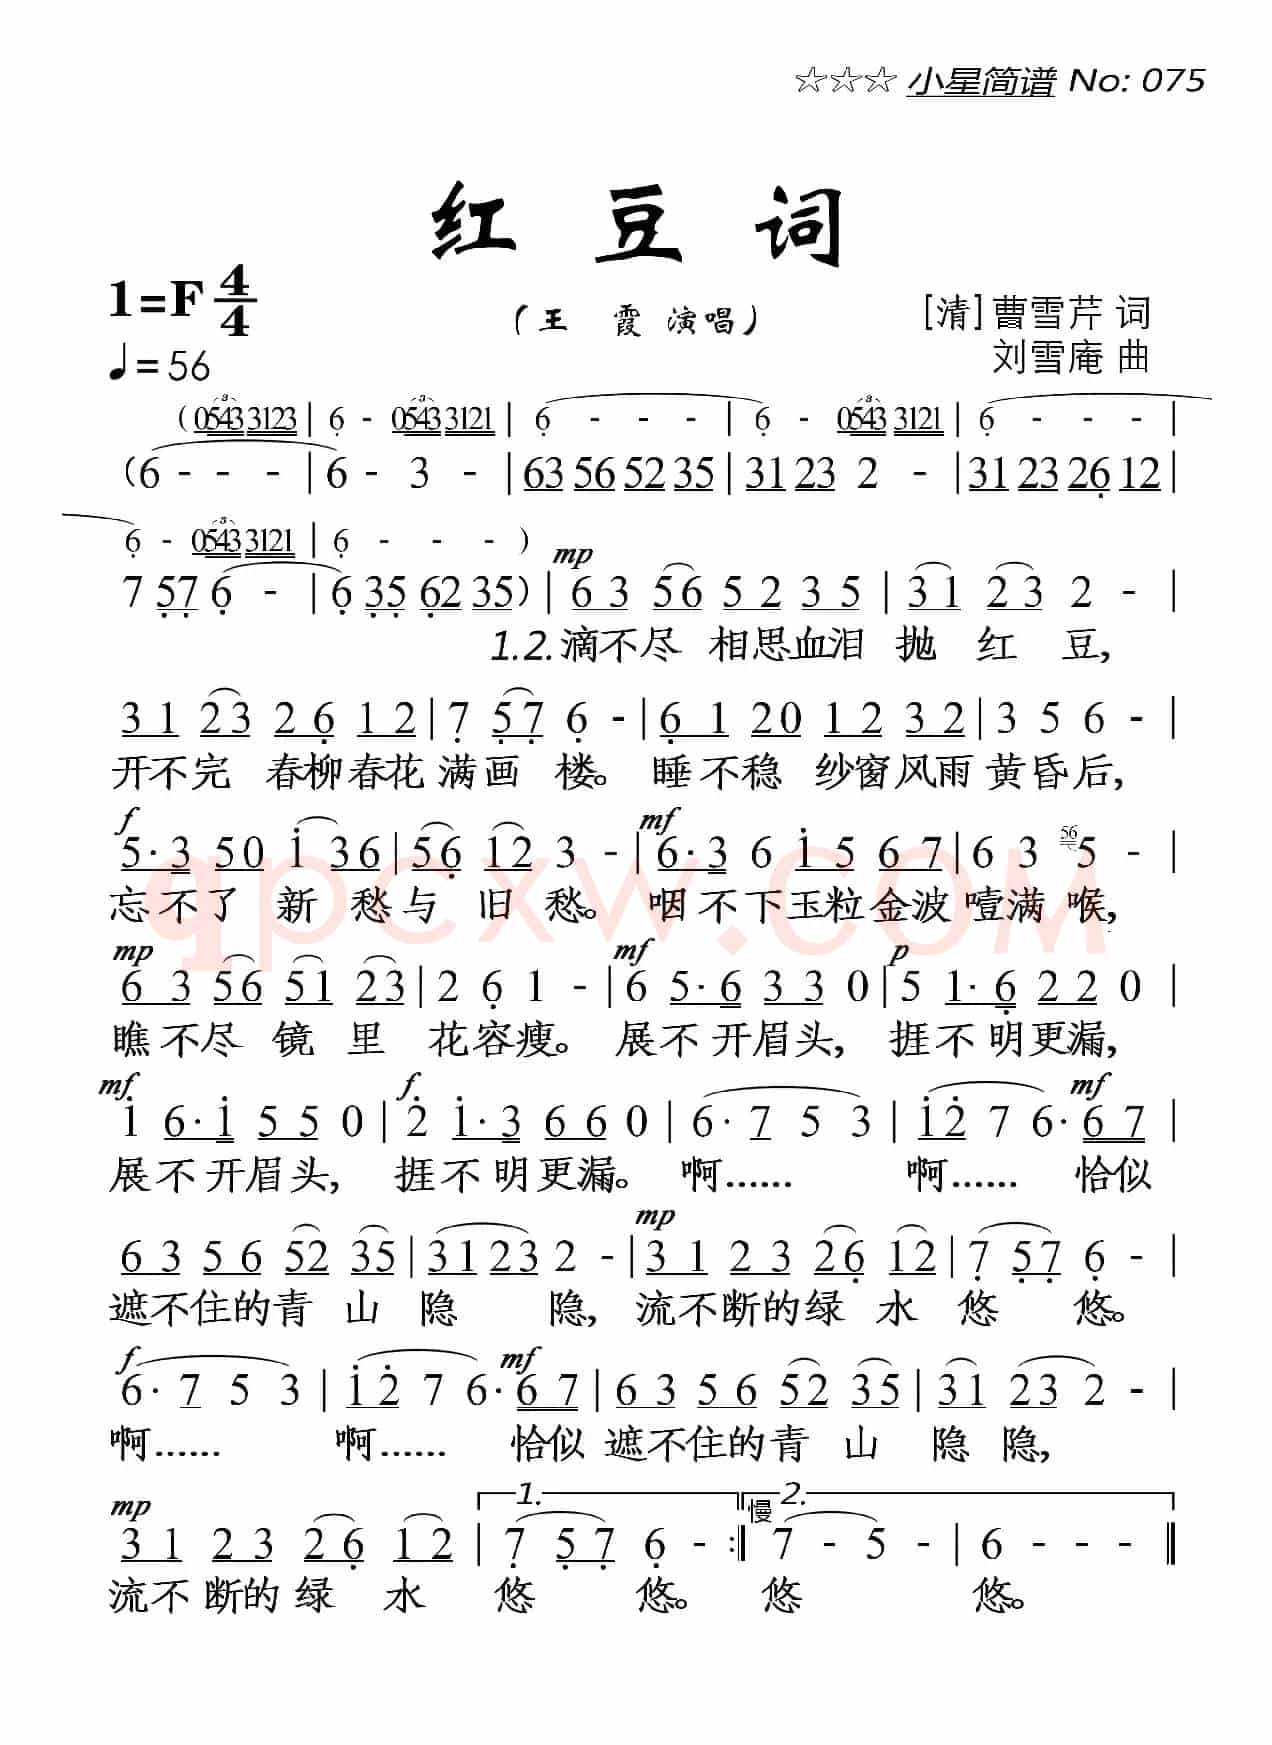 ☆☆☆ 小星简谱 No: 075
红 豆 词
1=F 4/4
(王 霞 演唱)
[清] 曹雪芹 词
♩= 56
刘雪庵 曲
(0543 3123 | 6 - 0543 3121 | 6 - - - | 6 - 0543 3121 | 6 - - - |
(6 - - - | 6 - 3 - | 63 56 52 35 | 31 23 2 - | 31 23 26 12 |
6 - 0543 3121 | 6 - - - )
mp
7 57 6 - | 6 35 62 35) | 6 3 56 5 2 3 5 | 3 1 2 3 2 - |
1.2.滴不尽 相思血泪 抛 红 豆,
3 1 23 2 6 1 2 | 7 5 7 6 - | 6 1 20 1 2 3 2 | 3 5 6 - |
开不完 春柳春花 满画 楼。 睡不稳 纱窗风雨 黄昏后,
f mf
5·3 50 i 36 | 56 12 3 - | 6·3 6 i 5 6 7 | 6 3 56 5 - |
忘不了 新 愁与 旧 愁。 咽不下玉粒金波噎满喉,
qpcxw.com
mp mf p
6 3 56 51 23 | 2 6 1 - | 6 5·6 3 3 0 | 5 1·6 2 2 0 |
瞧不尽 镜 里 花容瘦。 展不开眉头, 捱不明更漏,
mf f
i 6·i 5 5 0 | 2 i·3 6 6 0 | 6·7 5 3 | i 2 7 6·6 7 |
mf
展不开眉头, 捱不明更漏。 啊…… 啊…… 恰似
mp
6 3 5 6 52 35 | 3 1 2 3 2 - | 3 1 2 3 26 12 | 7 5 7 6 - |
遮不住的青 山 隐 隐, 流不断的绿 水 悠 悠。
f mf
6·7 5 3 | i 2 7 6·6 7 | 6 3 5 6 52 35 | 31 23 2 - |
啊…… 啊…… 恰似 遮不住的青 山 隐 隐,
mp 1. 慢 2.
3 1 2 3 2 6 1 2 | 7 5 7 6 - :| 7 - 5 - | 6 - - - ‖
流不断的绿 水 悠 悠。 悠 悠。